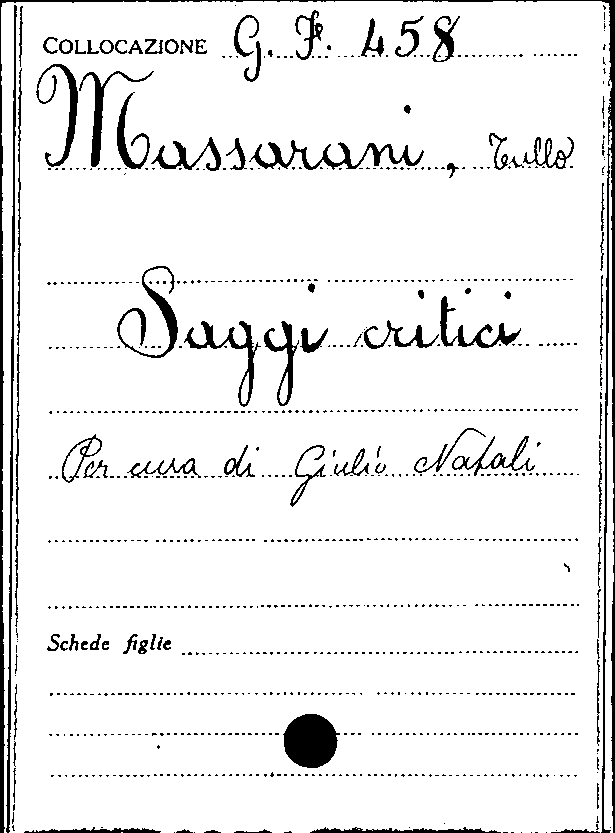 COLLOCAZIONE G. F. 458
Massarani, Tullo
Saggi critici
Per cura di Giulio Natali
Schede figlie